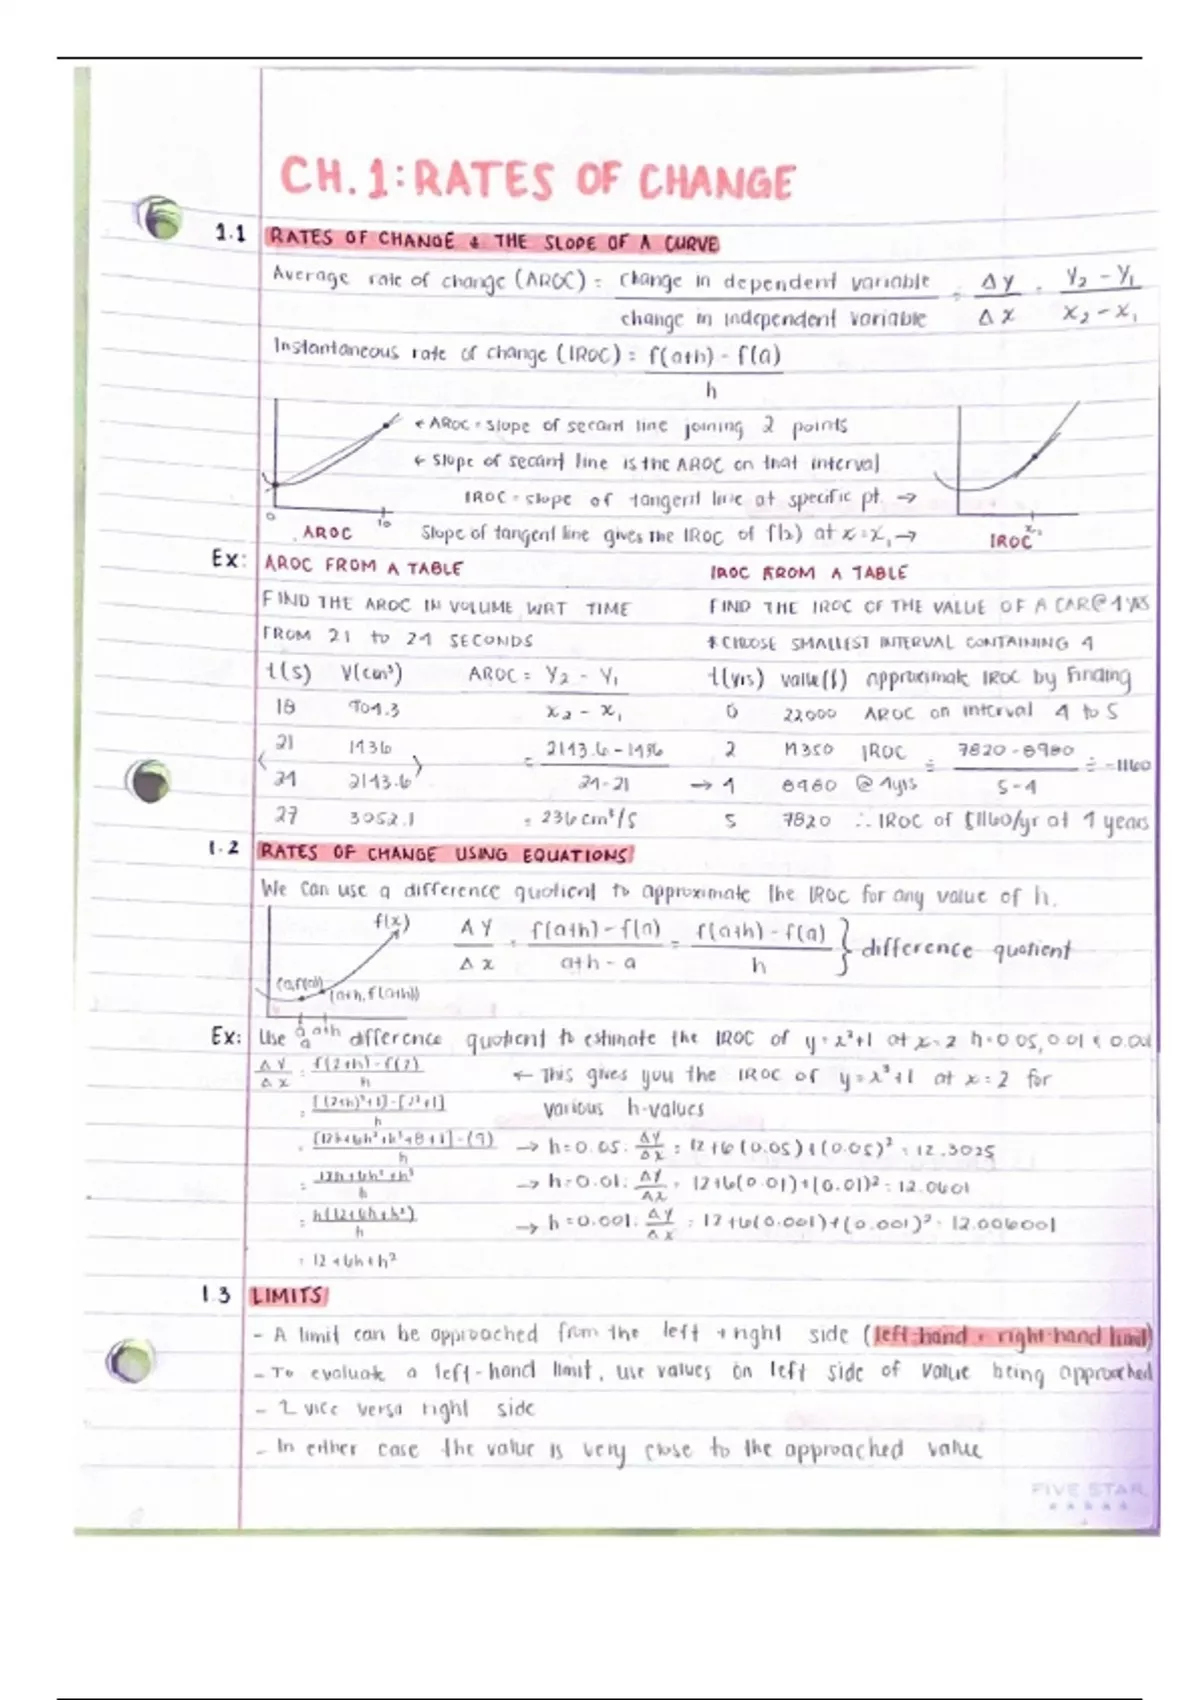 CH.1: RATES OF CHANGE
1.1 RATES OF CHANGE & THE SLOPE OF A CURVE
Average rate of change (AROC) = change in dependent variable / change in independent variable = Δy / Δx = y₂ - y₁ / x₂ - x₁
Instantaneous rate of change (IROC) = f(a+h) - f(a) / h
← AROC = slope of secant line joining 2 points
← slope of secant line is the AROC on that interval
IROC = slope of tangent line at specific pt. →
0 10
AROC
Slope of tangent line gives the IROC of f(x) at x = x₁ →
x₁
IROC
Ex: AROC FROM A TABLE
FIND THE AROC IN VOLUME WRT TIME
FROM 21 to 24 SECONDS
t(s) V(cm³) AROC = y₂ - y₁ / x₂ - x₁
18
21 1436
24 2143.6
27 3052.1
= 2143.6 - 1436 / 24-21
= 236 cm³/s
IROC FROM A TABLE
FIND THE IROC OF THE VALUE OF A CAR @ 4 YRS
* CHOOSE SMALLEST INTERVAL CONTAINING 4
t(yrs) value($) approximate IROC by finding
0 22000 AROC on interval 4 to 5
2 IROC @ 4yrs ≐ 7820 - 8980 / 5-4 ≐ -1160
→ 4 8980
5 7820 ∴ IROC of $1160/yr at 4 years
1.2 RATES OF CHANGE USING EQUATIONS
We can use a difference quotient to approximate the IROC for any value of h.
f(x)
(a, f(a))
(a+h, f(a+h))
a a+h
Δy / Δx = f(a+h) - f(a) / a+h - a = f(a+h) - f(a) / h } difference quotient
Ex: Use a difference quotient to estimate the IROC of y = x³+1 at x=2 h=0.05, 0.01 & 0.001
Δy / Δx = f(2+h) - f(2) / h
← This gives you the IROC of y = x³+1 at x=2 for
various h-values
= [(2+h)³+1] - [2³+1] / h
= [12h+6h²+h³+8+1] - (9) / h
→ h=0.05: Δy / Δx = 12+6(0.05)+(0.05)² = 12.3025
= 12h+6h²+h³ / h
→ h=0.01: Δy / Δx = 12+6(0.01)+(0.01)² = 12.0601
= h(12+6h+h²) / h
→ h=0.001: Δy / Δx = 12+6(0.001)+(0.001)² = 12.006001
= 12+6h+h²
1.3 LIMITS
- A limit can be approached from the left + right side (left-hand + right-hand limit)
- To evaluate a left-hand limit, use values on left side of value being approached
- & vice versa right side
- In either case the value is very close to the approached value
FIVE STAR